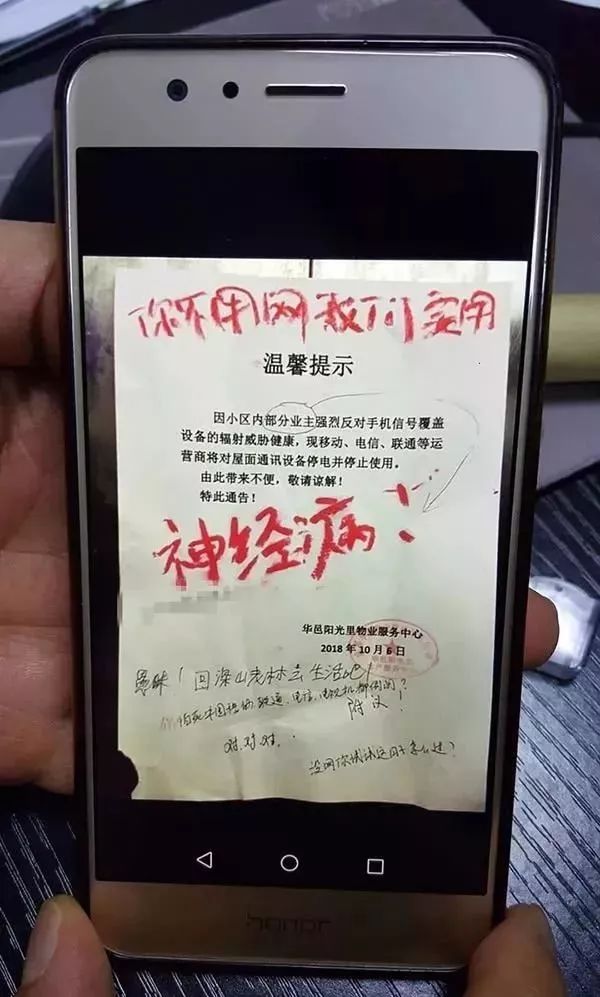 你不用网我们实用
温馨提示
因小区内部分业主强烈反对手机信号覆盖
设备的辐射威胁健康，现移动、电信、联通等运
营商将对屋面通讯设备停电并停止使用。
由此带来不便，敬请谅解！
特此通告！
神经病！
华邑阳光里物业服务中心
2018年10月6日
愚昧！回深山老林去生活吧！
附议！
对.对.对.
没网你试试这日子怎么过？
honor